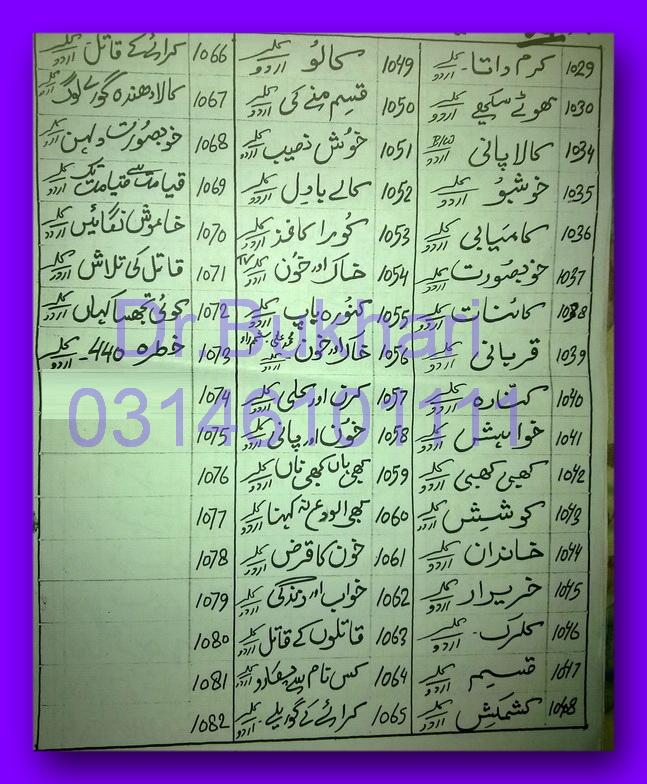 1029 کرم داتا کلر اردو
1030 کھوٹے سکے کلر اردو
1034 کالا پانی B/W اردو
1035 خوشبو کلر اردو
1036 کامیابی کلر اردو
1037 خوبصورت کلر اردو
1038 کائنات کلر اردو
1039 قربانی کلر اردو
1040 کنارہ کلر اردو
1041 خواہش کلر اردو
1042 کبھی کبھی کلر اردو
1043 کوشش کلر اردو
1044 خاندان کلر اردو
1045 خریدار کلر اردو
1046 کلرک کلر اردو
1047 قسیم کلر اردو
1048 کشمکش کلر اردو
1049 کالو کلر اردو
1050 قسم منے کی کلر اردو
1051 خوش نصیب کلر اردو
1052 کالے بادل کلر اردو
1053 کورا کاغذ کلر اردو
1054 خاک اور خون TV کلر اردو
1055 کنوارہ باپ کلر اردو
1056 خاک اور خون کلر اردو
1057 کرن اور کلی کلر اردو
1058 خون اور پانی کلر اردو
1059 کبھی ہاں کبھی ناں کلر اردو
1060 کبھی الوداع نہ کہنا کلر اردو
1061 خون کا قرض کلر اردو
1062 خواب اور زندگی کلر اردو
1063 قاتلوں کے قاتل کلر اردو
1064 کس نام سے پکارو کلر اردو
1065 کرائے کے گوریلے کلر اردو
1066 کرائے کے قاتل کلر اردو
1067 کالا دھندہ گورے لوگ کلر اردو
1068 خوبصورت دلہن کلر اردو
1069 قیامت سے قیامت تک کلر اردو
1070 خاموش نگاہیں کلر اردو
1071 قاتل کی تلاش کلر اردو
1072 کوئی تجھ سا کہاں کلر اردو
1073 خطرہ 440 کلر اردو
1074
1075
1076
1077
1078
1079
1080
1081
1082
Dr.Bukhari
03146101111